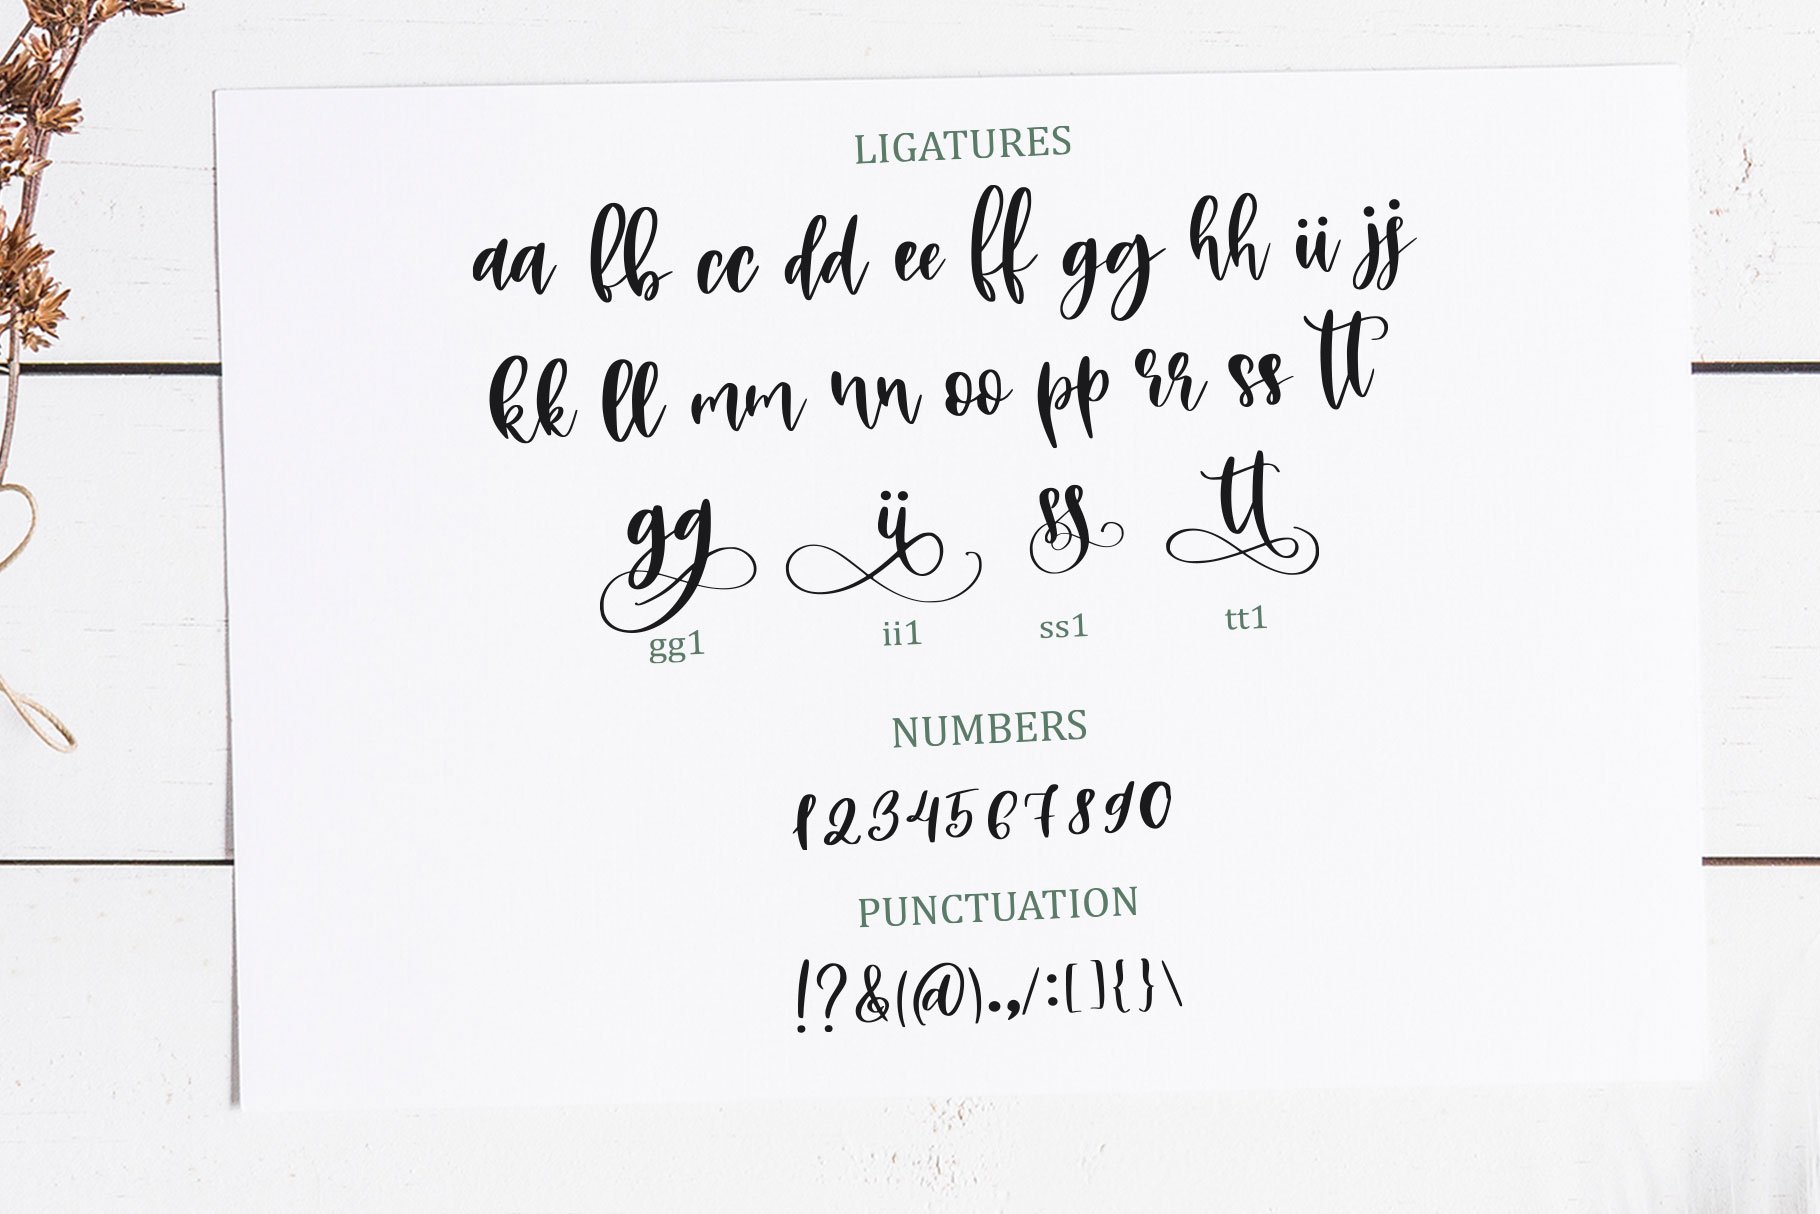 LIGATURES
aa bb cc dd ee ff gg hh ii jj
kk ll mm nn oo pp rr ss tt
gg ii ss tt
gg1 ii1 ss1 tt1
NUMBERS
1234567890
PUNCTUATION
!?&(@).,/:[]{}\